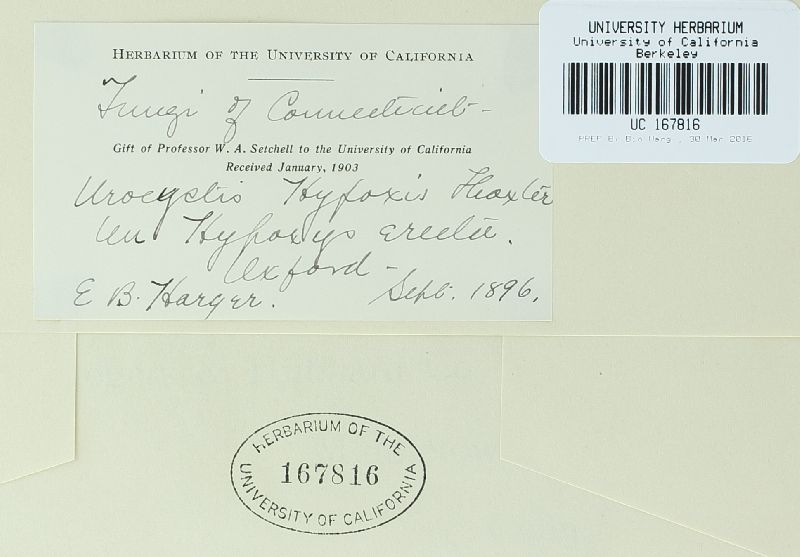 HERBARIUM OF THE UNIVERSITY OF CALIFORNIA
Fungi of Connecticut-
Gift of Professor W. A. Setchell to the University of California
Received January, 1903
Urocystis Hypoxis Thaxter
On Hypoxys erecta.
Oxford-
E B. Harger. Sept. 1896.
UNIVERSITY HERBARIUM
University of California
Berkeley
UC 167816
PREP BY Bin Wang, 30 Mar 2016
HERBARIUM OF THE
167816
UNIVERSITY OF CALIFORNIA